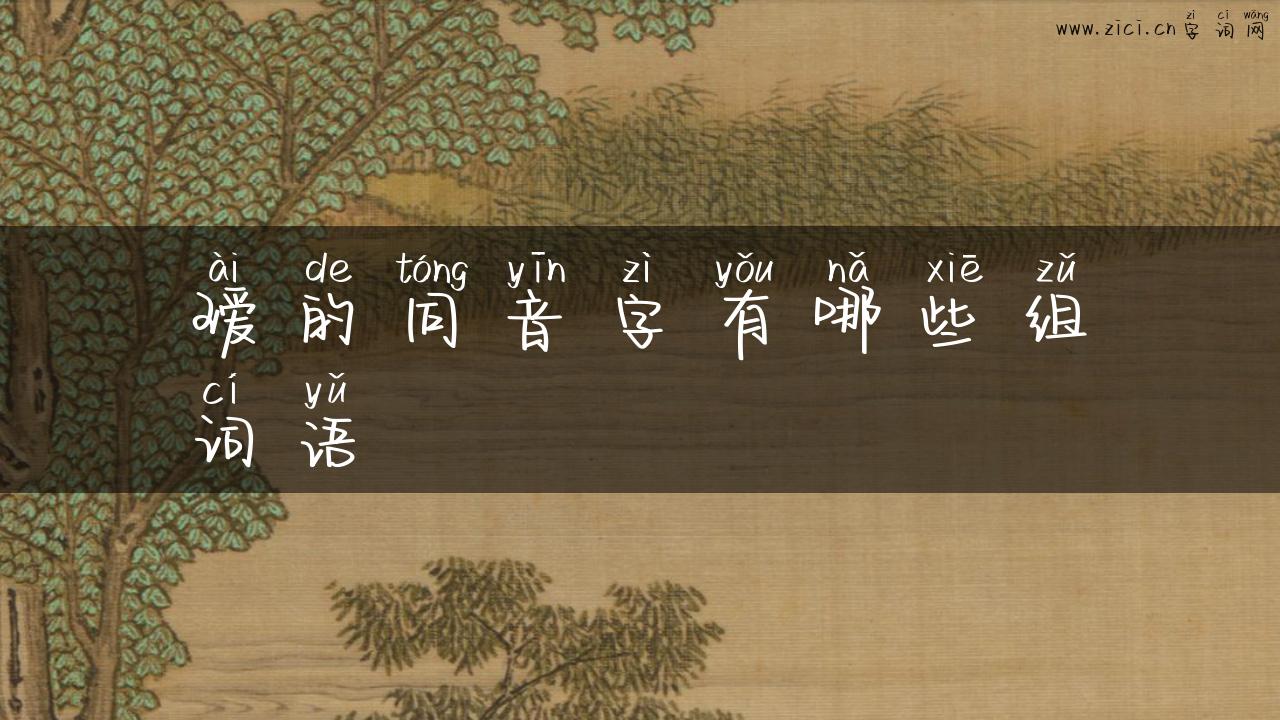 www.zici.cn
zì cí wǎng
字词网
ài de tóng yīn zì yǒu nǎ xiē zǔ
瑷的同音字有哪些组
cí yǔ
词语